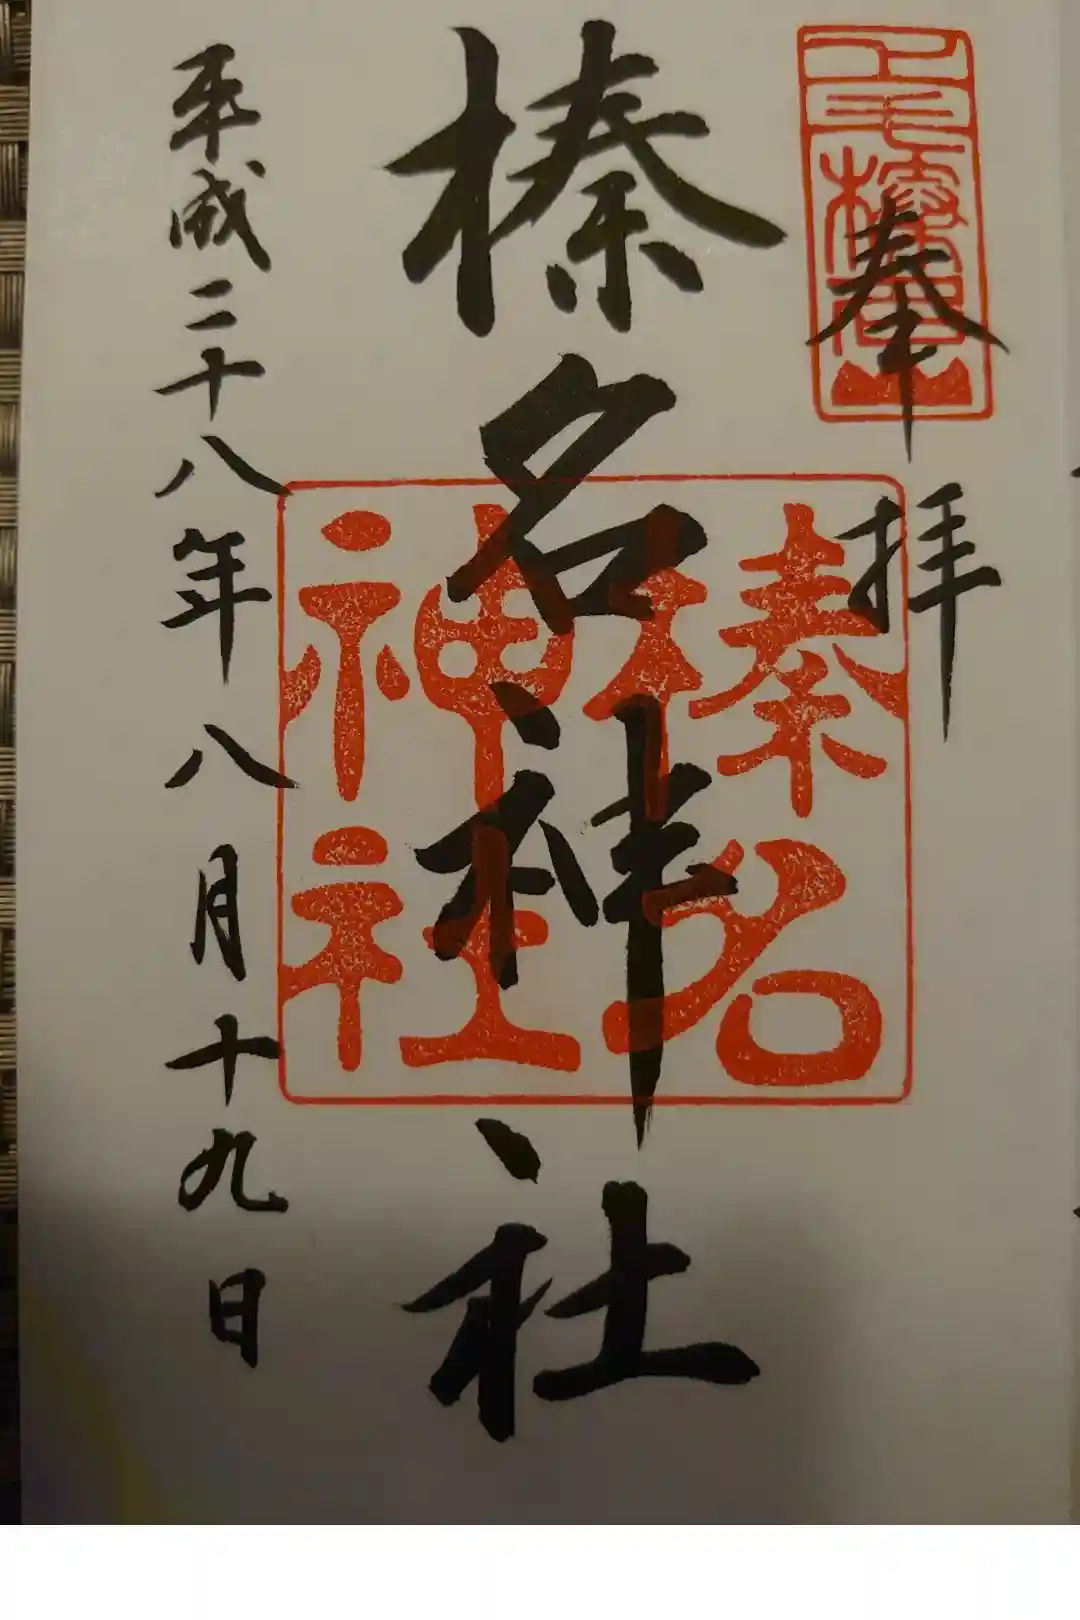 奉拝
榛名神社
榛名
神社
平成二十八年八月十九日